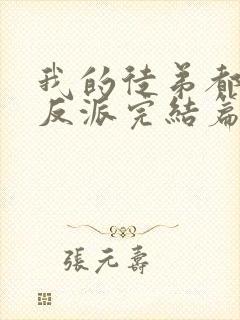 我的徒弟都
反派完結篇
張元壽